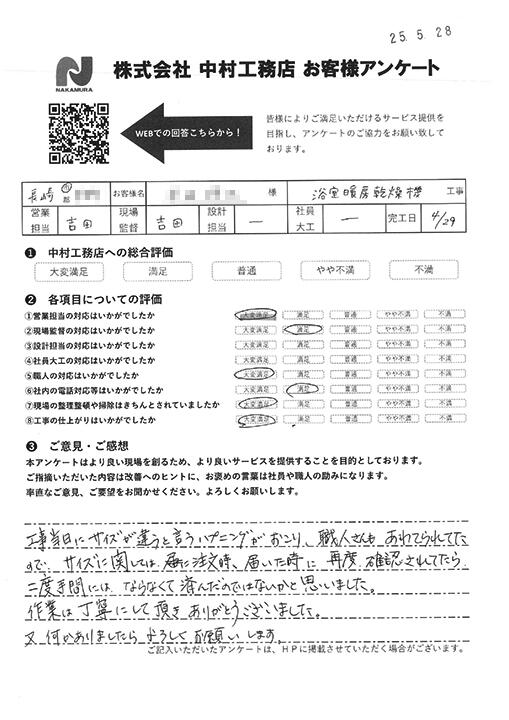 25.5.28
NAKAMURA
株式会社 中村工務店 お客様アンケート
WEBでの回答こちらから！
皆様によりご満足いただけるサービス提供を
目指し、アンケートのご協力をお願い致して
おります。
長崎 市 郡 お客様名 様 浴室暖房乾燥機 工事
営業担当 吉田 現場監督 吉田 設計担当 ー 社員大工 ー 完工日 4/29
❶ 中村工務店への総合評価
大変満足 満足 普通 やや不満 不満
❷ 各項目についての評価
①営業担当の対応はいかがでしたか 大変満足 満足 普通 やや不満 不満
②現場監督の対応はいかがでしたか 大変満足 満足 普通 やや不満 不満
③設計担当の対応はいかがでしたか 大変満足 満足 普通 やや不満 不満
④社員大工の対応はいかがでしたか 大変満足 満足 普通 やや不満 不満
⑤職人の対応はいかがでしたか 大変満足 満足 普通 やや不満 不満
⑥社内の電話対応等はいかがでしたか 大変満足 満足 普通 やや不満 不満
⑦現場の整理整頓や掃除はきちんとされていましたか 大変満足 満足 普通 やや不満 不満
⑧工事の仕上がりはいかがでしたか 大変満足 満足 普通 やや不満 不満
❸ ご意見・ご感想
本アンケートはより良い現場を創るため、より良いサービスを提供することを目的としております。
ご指摘いただいた内容は改善へのヒントに、お褒めの言葉は社員や職人の励みになります。
率直なご意見、ご要望をお聞かせください。よろしくお願いします。
工事当日にサイズが違うと言うハプニングがおこり、職人さんもあわてられてた
ので、サイズに関しては 届に注文時、届いた時に 再度 確認されてたら
二度手間には ならなくて済んだのではないかと思いました。
作業は丁寧にして頂き ありがとうございました。
又 何かありましたら よろしくお願いします。
ご記入いただいたアンケートは、HPに掲載させていただく場合がございます。